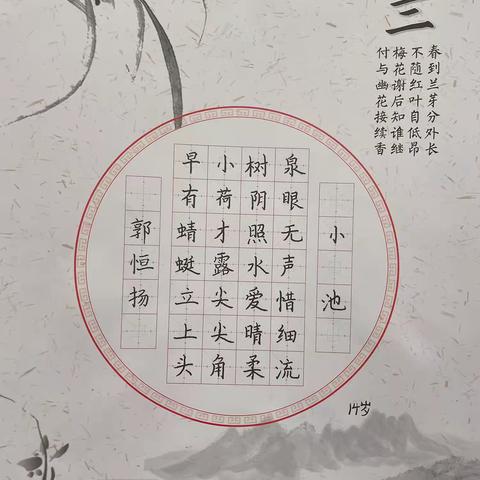 春到兰芽分外长
不随红叶自低昂
梅花谢后知谁继
付与幽花接续香
小池
泉眼无声惜细流
树阴照水爱晴柔
小荷才露尖尖角
早有蜻蜓立上头
郭恒扬
14岁